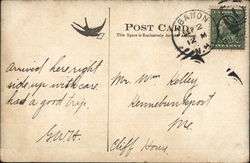 POST CARD
This Space is Exclusively for the
LEBANON
N.H.
Arrived here right
side up with care.
had a good trip.
G.W.H.
Mr. Wm Kelley
Kennebunkport
Me.
Cliff House